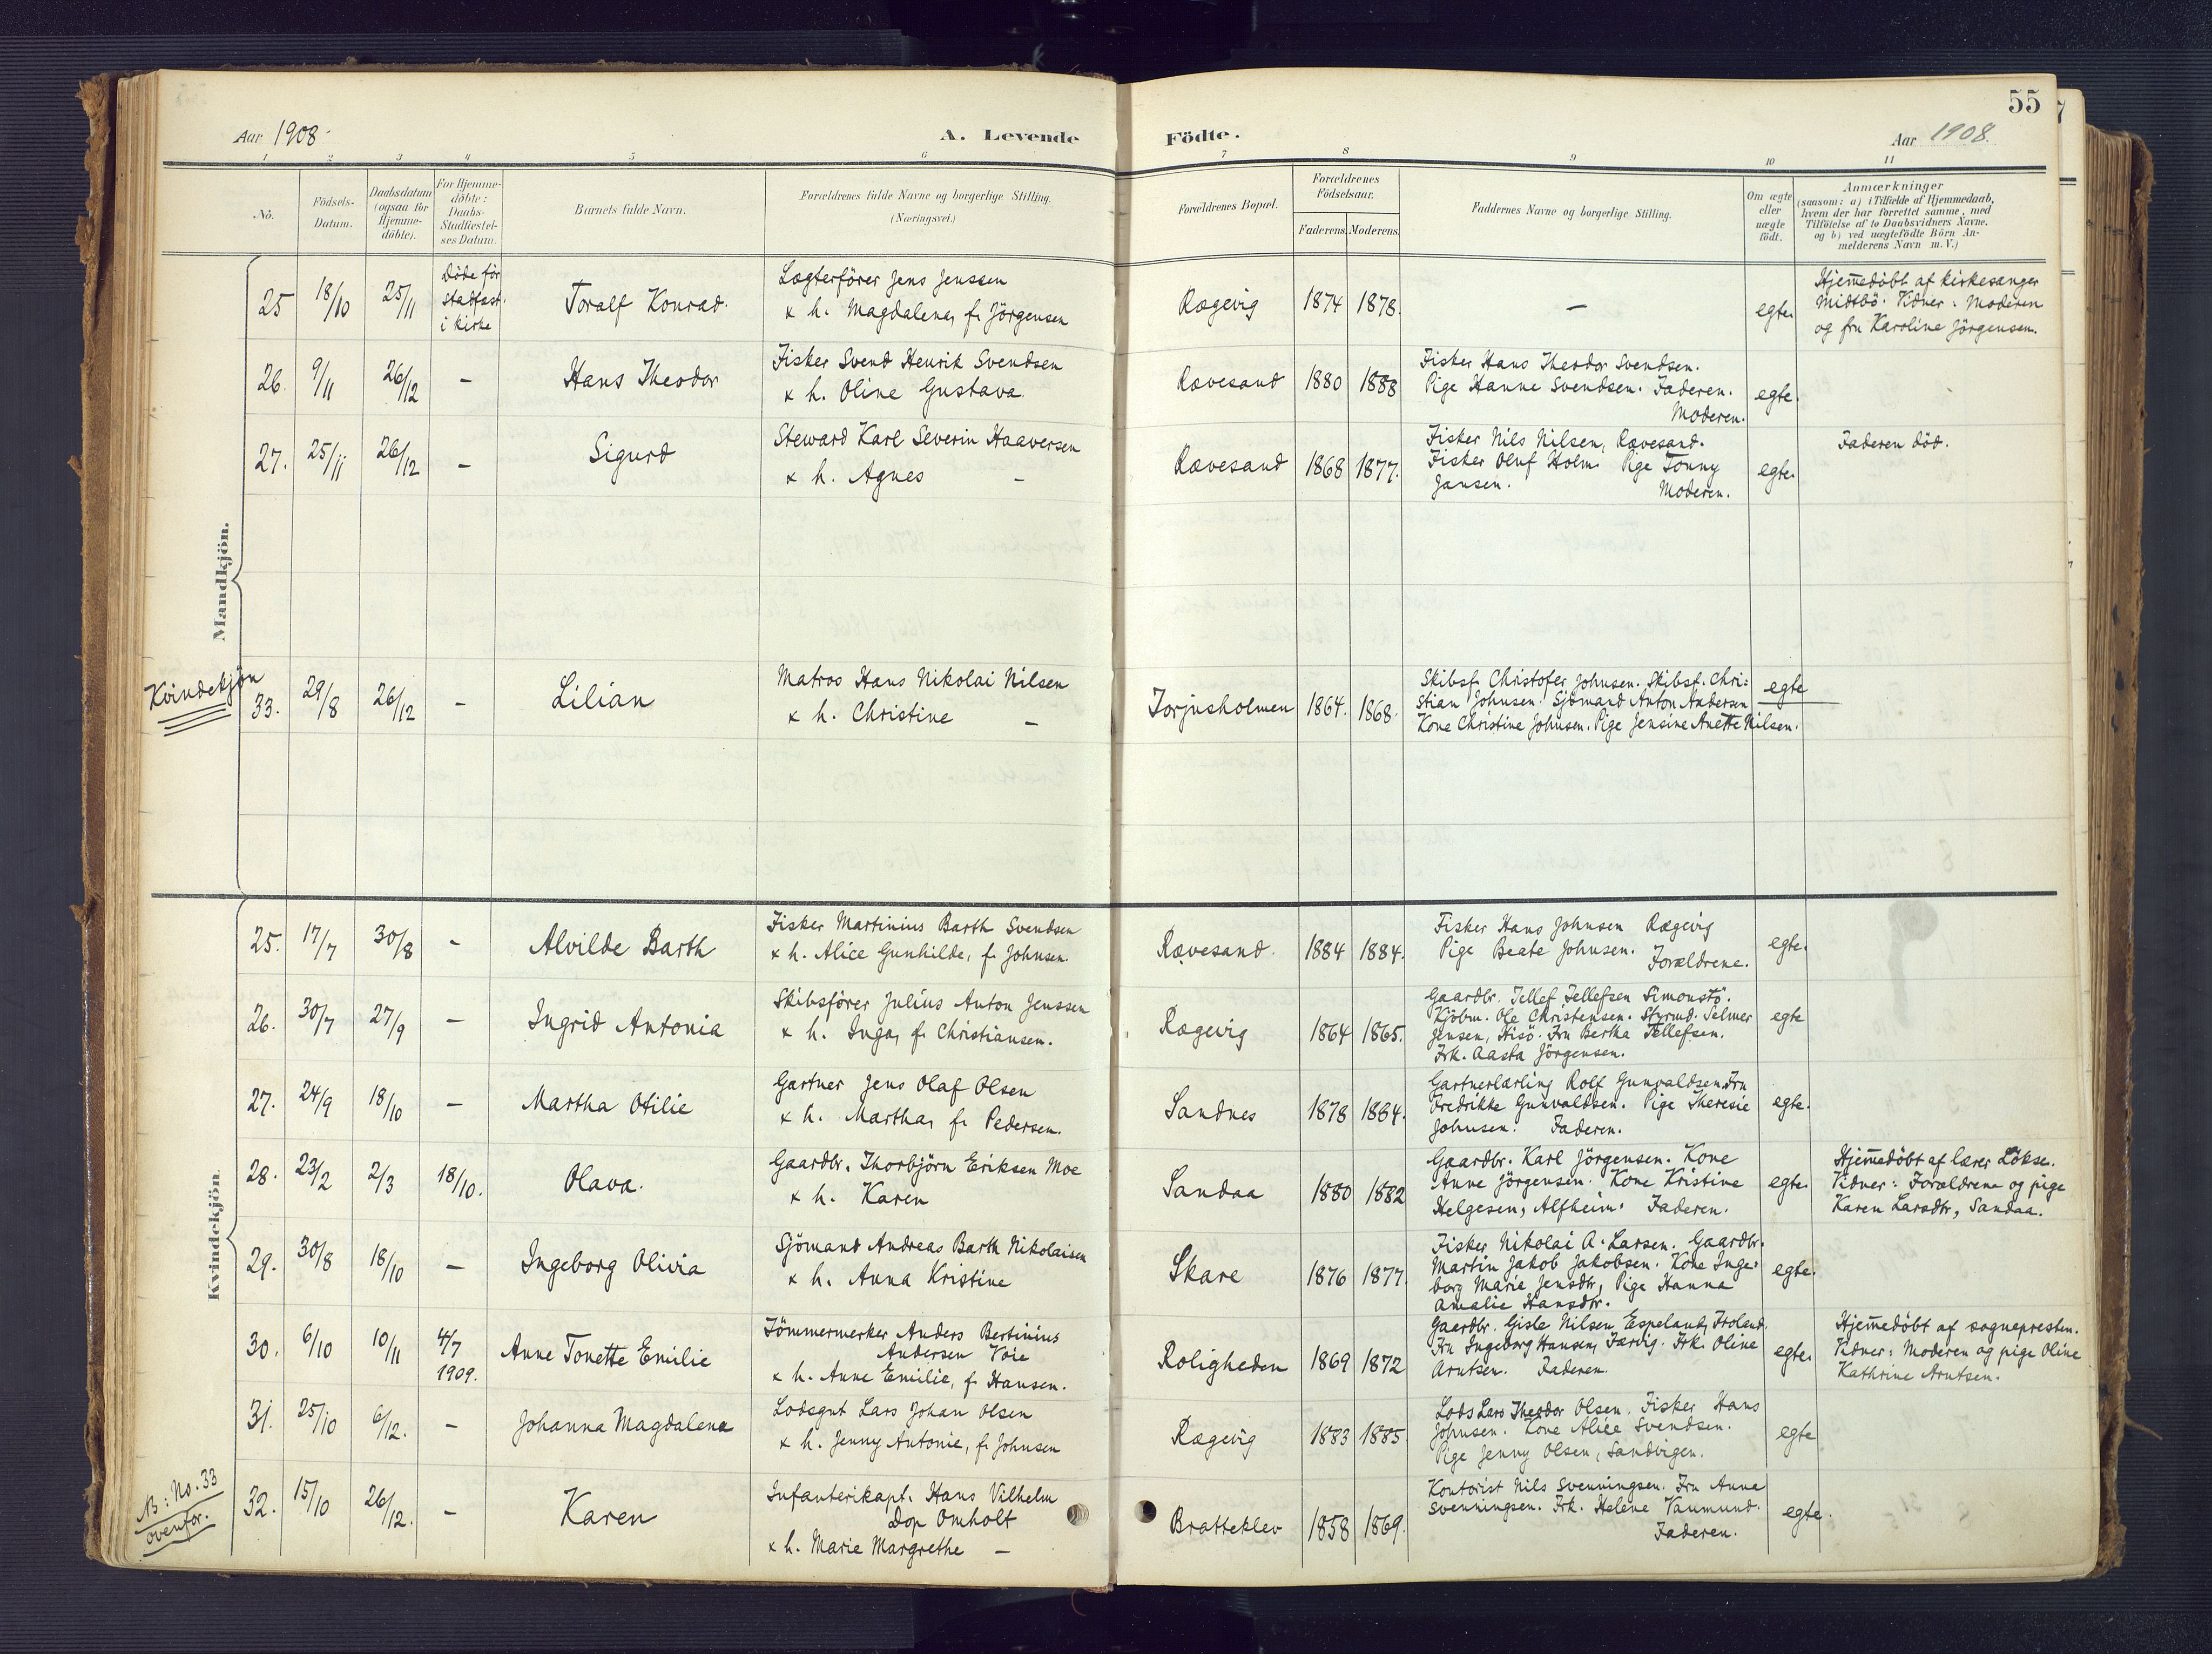 55
Aar 1908.
A. Levende
Födte.
Aar 1908.
1 2 3 4 5 6 7 8 9 10 11
No.
Födsels-
Datum.
Daabsdatum
(ogsaa for
Hjemme-
döbte).
For Hjemme-
döbte:
Daabs-
Stadfæstel-
ses Datum.
Barnets fulde Navn.
Forældrenes fulde Navne og borgerlige Stilling.
(Næringsvei.)
Forældrenes Bopæl.
Forældrenes
Födselsaar.
Faderens. Moderens.
Faddernes Navne og borgerlige Stilling.
Om ægte
eller
uægte
födt.
Anmærkninger
(saasom: a) i Tilfælde af Hjemmedaab,
hvem der har forrettet samme, med
Tilföielse af to Daabsvidners Navne.
og b) ved uægtefödte Börn An-
melderens Navn m. V.)
Mandkjön.
25 18/10 25/11
Döde för
stadfæst.
i kirke
Toralf Konrad.
Lægterförer Jens Jenssen
& h. Magdalena, f. Jörgensen
Rægevig 1874 1878. – egte.
Hjemmedöbt af kirkesanger
Midtbö. Vidner: Moderen
og fru Karoline Jörgensen.
26. 9/11 26/12 – Hans Theodor
Fisker Svend Henrik Svendsen
& h. Oline Gustava.
Rævesand 1880 1888
Fisker Hans Theodor Svendsen.
Pige Hanne Svendsen. Faderen.
Moderen.
egte.
27. 25/11 26/12 – Sigurd
Steward Karl Severin Haaversen
& h. Agnes –
Rævesand 1868 1877.
Fisker Nils Nilsen, Rævesand.
Fisker Oluf Holm. Pige Tonny
Jansen. Moderen.
egte.
Faderen död.
Kvindekjön
33. 29/8 26/12 – Lilian
Matros Hans Nikolai Nilsen
& h. Christine –
Torjusholmen 1864. 1868.
Skibsf. Christofer Johnsen. Skibsf. Chri-
stian Johnsen. Sjömand Anton Andersen
Kone Christine Johnsen. Pige Jensine Anette Nilsen.
egte
Kvindekjön.
25. 17/7 30/8 – Alvilde Barth
Fisker Martinius Barth Svendsen
& h. Alice Gunhilde, f. Johnsen.
Rævesand. 1884 1884.
Fisker Hans Johnsen Rægevig
Pige Beate Johnsen. Forældrene.
egte.
26. 30/7 27/9 – Ingrid Antonia
Skibsförer Julius Anton Jenssen
& h. Inga, f. Christiansen.
Rægevig 1864 1865.
Gaardbr. Tellef Tellefsen Simonstö.
Kjöbm. Ole Christensen. Styrmd. Selmer
Jensen, Hisö. Fru Bertha Tellefsen.
Frk. Aasta Jörgensen.
egte
27. 24/9 18/10 – Martha Otilie
Gartner Jens Olaf Olsen
& h. Martha, f. Pedersen.
Sandnes 1878 1884.
Gartnerlærling Rolf Gunvaldsen. Fru
Fredrikke Gunvaldsen. Pige Theresie
Johnsen. Faderen.
egte.
28. 23/2 2/3 18/10. Olava.
Gaardbr. Thorbjörn Eriksen Moe
& h. Karen
Sandaa 1880 1882
Gaardbr. Karl Jörgensen. Kone
Anne Jörgensen. Kone Kristine
Helgesen, Alfheim. Faderen.
egte.
Hjemmedöbt af lærer Lökse.
Vidner: Forældrene og pige
Karen Larsdtr, Sandaa.
29. 30/8 18/10 – Ingeborg Olivia
Sjömand Andreas Barth Nikolaisen
& h. Anna Kristine
Skare 1876 1877.
Fisker Nikolai A. Larsen. Gaardbr.
Martin Jakob Jakobsen. Kone Inge-
borg Marie Jensdtr, Pige Hanna
Amalie Hansdtr.
egte.
30. 6/10 10/11 4/7
1909.
Anne Tonette Emilie
Tömmermerker Anders Bertinius
Andersen Voie
& h. Anne Emilie, f. Hansen.
Roligheden 1869 1872
Gaardbr. Gisle Nilsen Espeland, Froland.
Fru Ingeborg Hansen, Færvig. Frk. Oline
Arntsen. Faderen.
egte.
Hjemmedöbt af sognepresten.
Vidner: Moderen og pige Oline
Kathrine Arntsen.
31. 25/10 6/12. – Johanna Magdalena
Lodsgut Lars Johan Olsen
& h. Jenny Antonie, f. Johnsen
Rægevig 1883 1885.
Lods Lars Theodor Olsen. Fisker Hans
Johnsen. Kone Alice Svendsen.
Pige Jenny Olsen, Sandvigen.
egte
NB: No. 33
ovenfor.
32. 15/10 26/12. – Karen
Infanterikapt. Hans Vilhelm
Dop Omholt
& h. Marie Margrethe –
Bratteklev 1858 1869.
Kontorist Nils Svenningsen. Fru Anna
Svenningsen. Frk. Helene Vaumund.
Faderen.
egte.